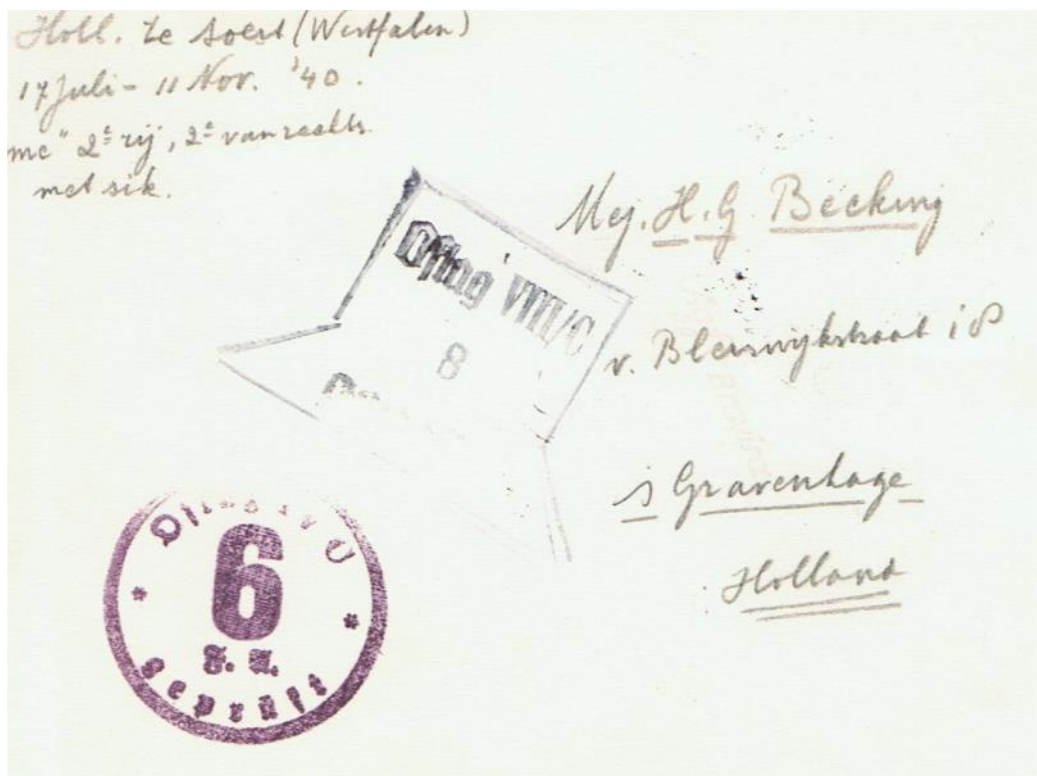 Holl. te Soest (Westfalen)
17 Juli - 11 Nov. '40.
me" 2e rij, 2e van rechts
met sik.
Mej. H. G. Becking
v. Bleiswijkstraat 18
s Gravenhage
Holland
Oflag VIII/C
8
6
F. a.
geprüft